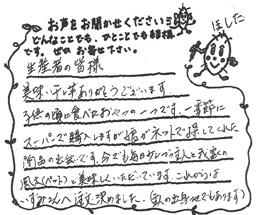 お声をお聞かせください!!
どんなことでも、ひとことでも結構
です。ぜひ お寄せ下さい。
ほした
生産者の皆様
美味しい干し芋ありがとうございます
子供の頃に食べたおやつの一つです、一季節に
スーパーズで購入しますが娘がネットで探してくれた
商品の出会です、今でも毎日少しづつ主人と我家の
風太(ペット)と美味しくいただいています。これからは
いずみさんへ注文決めました。(私の出身地でもあります)